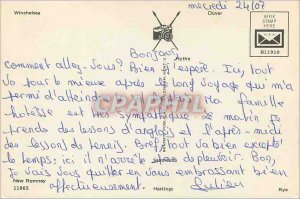 mercredi 24/07
Winchelsea
Dover
AFFIX
STAMP
HERE
B11910
Bonjour
Hythe
Comment allez-vous? Bien j'espère. Ici, tout
va pour le mieux après le long voyage qui m'a
permi d'atteindre
famille
hotesse est très sympatique le matin je
prends des lessons d'anglais et l'après-midi
des lessons de tennis. Bref tout va bien excepté
le temps; ici il n'arrête pas de pleuvoir. Bon,
Je vais vous quitter en vous embrassant bien
affectueusement.
Julien
PRPARTAGE.COM
New Romney
11865
Hastings
Rye